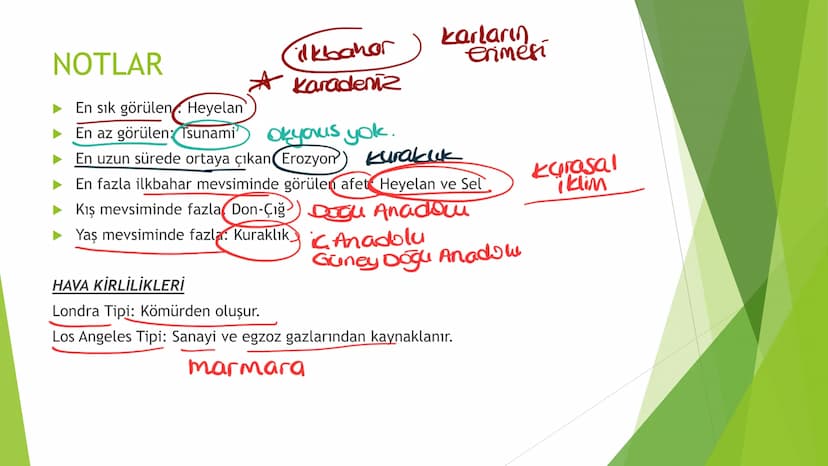 ilkbahar
Karların
erimesi
NOTLAR
Karadeniz
En sık görülen : Heyelan
En az görülen: Tsunami
Okyanus yok.
En uzun sürede ortaya çıkan Erozyon
Kuraklık
En fazla ilkbahar mevsiminde görülen afet: Heyelan ve Sel
Karasal
iklim
Kış mevsiminde fazla: Don-Çığ
Doğu Anadolu
Yaş mevsiminde fazla: Kuraklık
iç Anadolu
Güney Doğu Anadolu
HAVA KİRLİLİKLERİ
Londra Tipi: Kömürden oluşur.
Los Angeles Tipi: Sanayi ve egzoz gazlarından kaynaklanır.
marmara